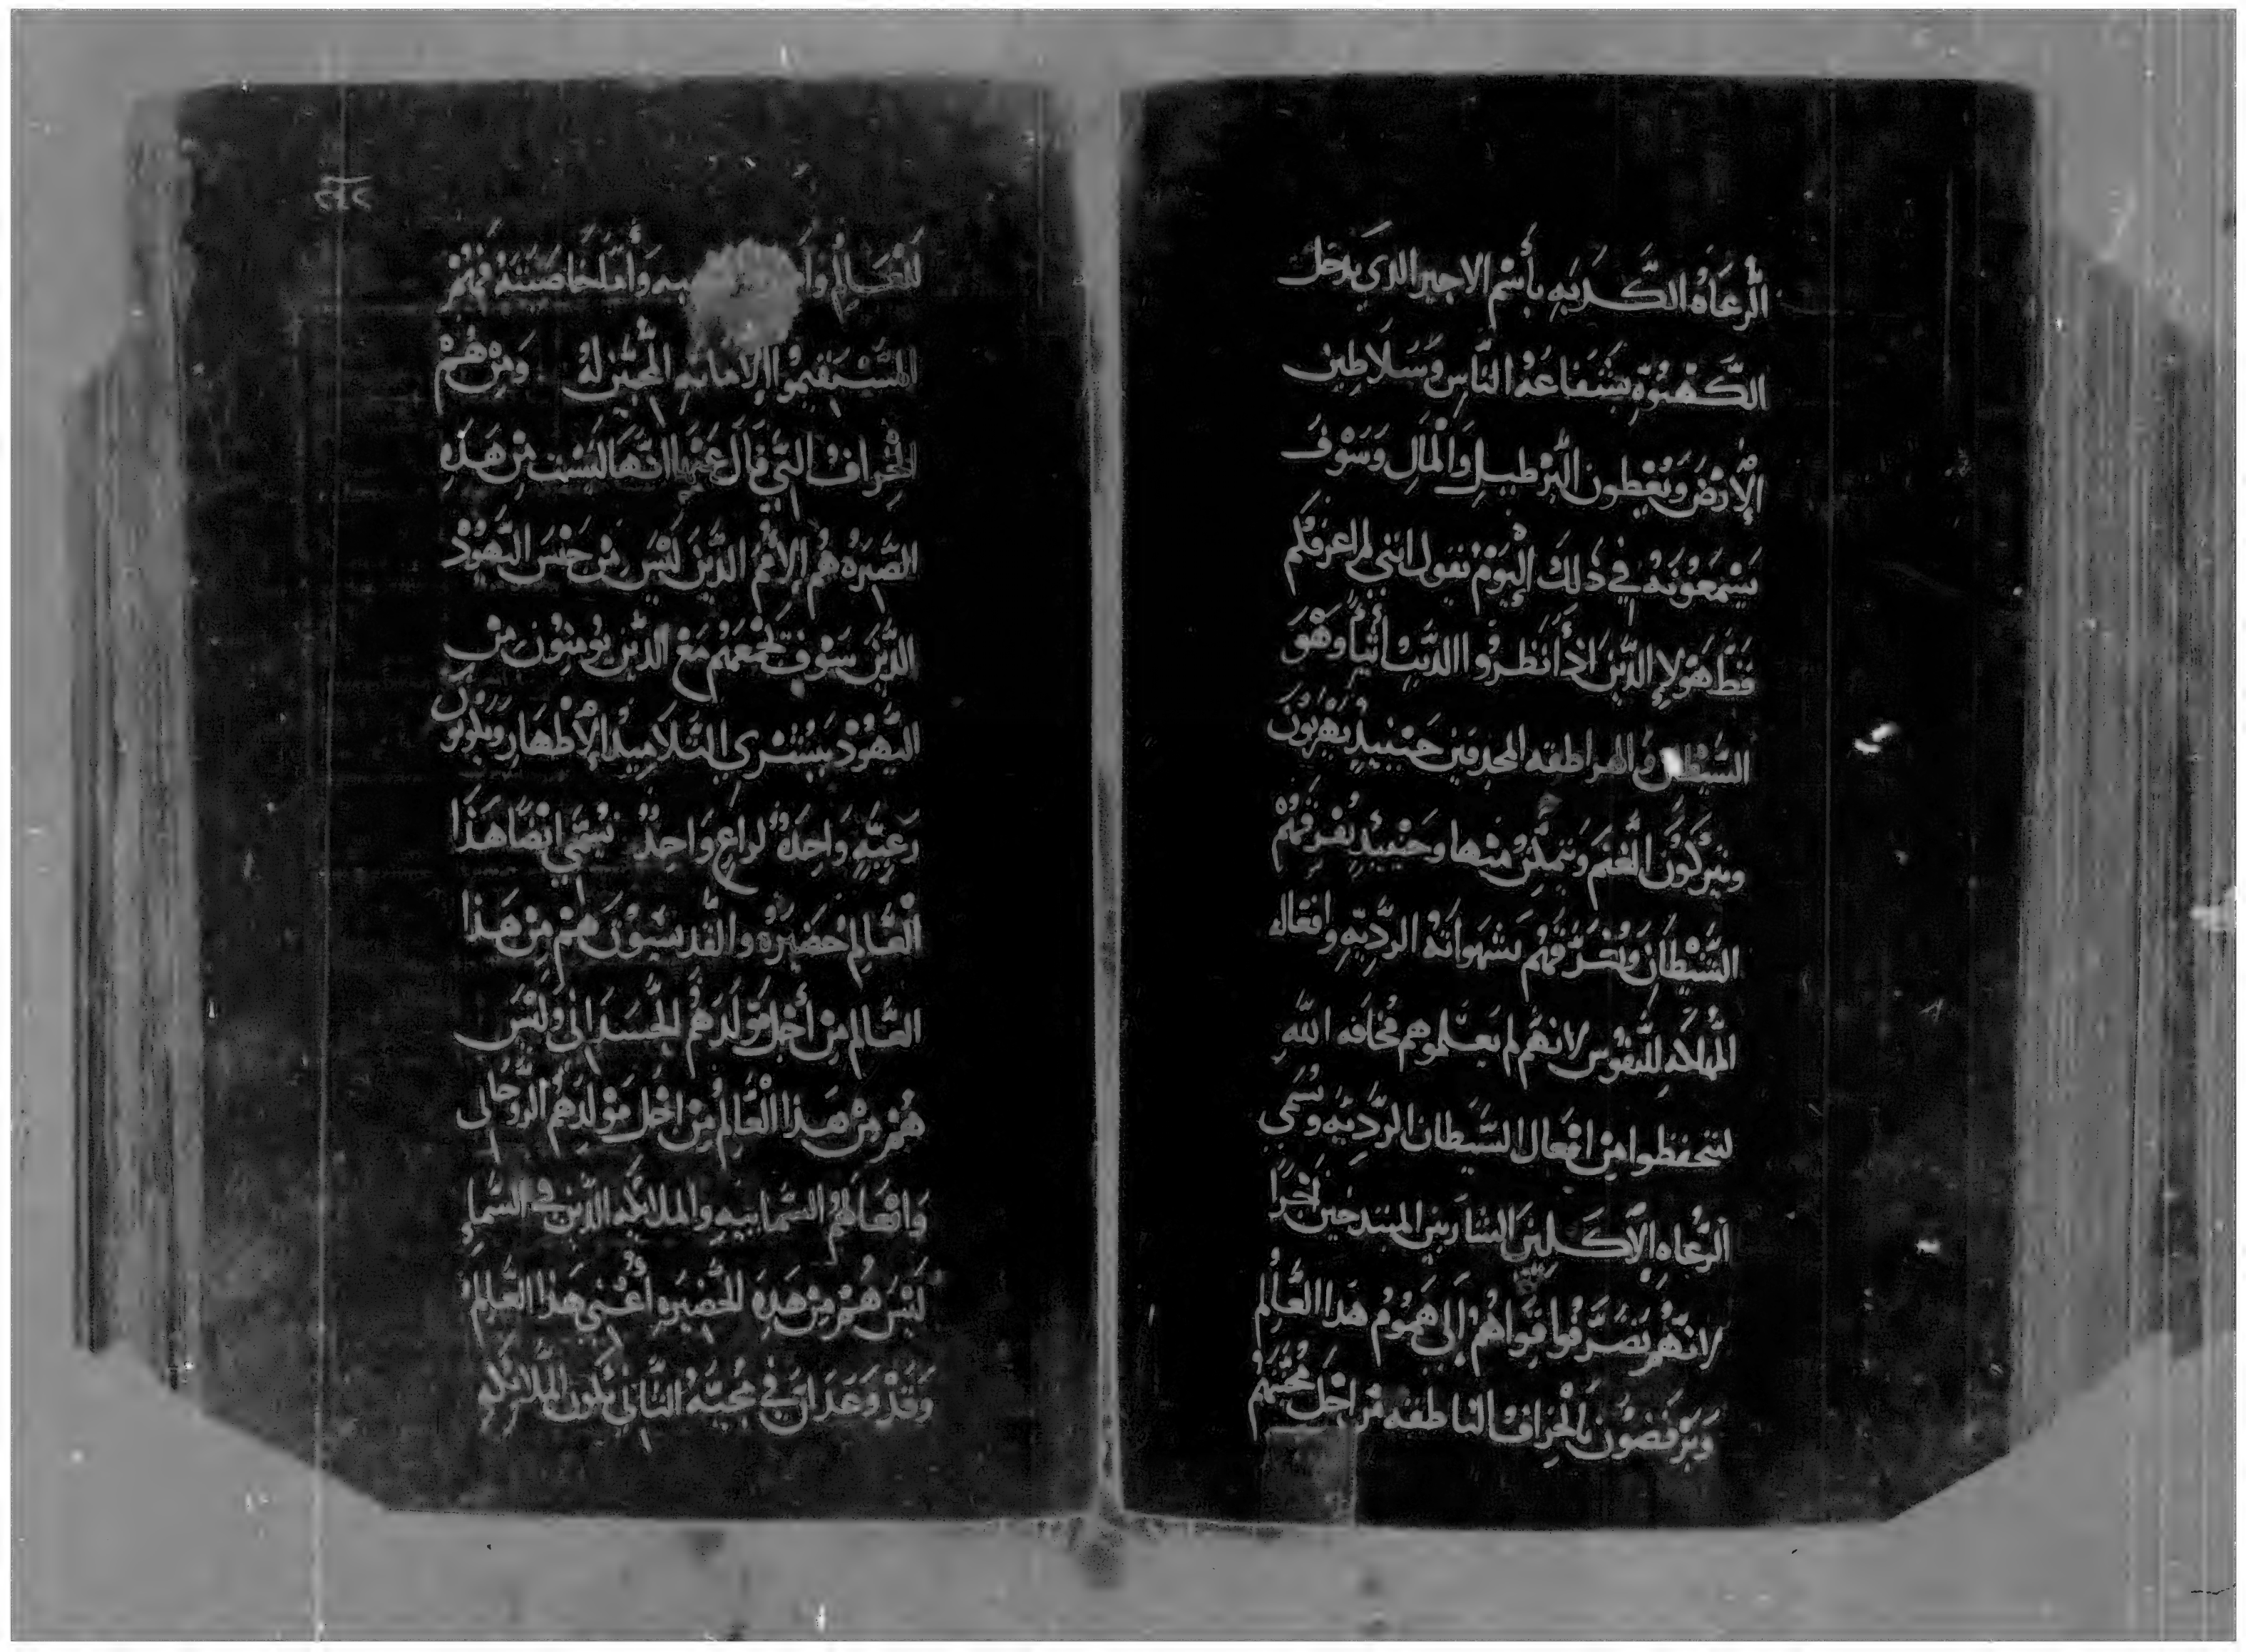 الرُعَاةُ الكَدبَهِ بأسْمِ الاجير الذي يدخل
الكَهْنوُةِ بشَفَاعَهُ النَّاسِ وَسَلَاطِين
الأرْضَ وَيُعْطون البْرطِيل وَالمَالِ وَسَوْفَ
يَسْمَعُونهُ في ذلِكَ اليَوْم يَقول انني لم اعرفكم
قَط هَوْلاءِ الدَّين اذَا نَظرُوا الديب أتياً وَهْوَ
الشَيْطَان وَالهراطقه المجدفين حَينيدٍ يَهْرَبُونَ
ويتركُون الغنم وَتتمكن منها وحَينيدٍ يُفرقهُمْ
الشَّيْطَان وَيُفَرقهُم بشَهَواتهُ الردِيَهِ وافعاله
المُهلكه للنفُوس لانهُم لم يَعَلموهم مخافه الله
ليتحفظوا مِن افعَال الشَيطان الردِيَه ويُسَمي
الرُعاه الأكلينَ الشاربين المبتدخين أجَرَا
لانهُم يَصرفُوا قواهُمْ إلَى هَمُومُ هَدا العَالم
وَيَرْفضُون بالخِرَاف الناطقه من اجَل مُحَبَتهُم
٢٩٢
للعَالِم وَأ وَأمّا خَاصَتهُ فَهُمْ
المُسْتقيمُوا الامَانهِ المُحبين لهُ وَمِن هُمْ
الخِرَافُ التي قَالَ عَنهَا انهَا ليْسْت مِن هَذِهِ
الصَيرَهُ هُم الأمَم الدَّين لَيْسَ مِن جنسَ اليَهوُدْ
الدَّين سَوف يجْمعَهُم مَعَ الدَين يؤمنوُن مِن
اليهُودْ ببُشرَي التلاميد الأطهَار وَيَكوُنونَ
رَعِيَّهِ وَاحِدَهُ لراعِ وَاحِدٌ يُسَمي ايْضاً هَذَا
العَالِم حَضيرَهُ وَالقديسُونَ هُم مِن هَدا
العَالم مِن أجل مَوْلدَهُم الجَسَدَاني وَليْسَ
هُمْ مِن هَدا العَالِم مِن اجل مَوْلدهُم الروُحَاني
وَافعَالهُمُ السَمابيَهِ والملايكه الدَّين في السَماءِ
ليْسَ هُمْ مِن هَدِهِ الحَضيرهِ اعْني هَدا العَالِم
وَقدْ وَعَدَ ان في مجيَهُ التاني تكون الملائكه